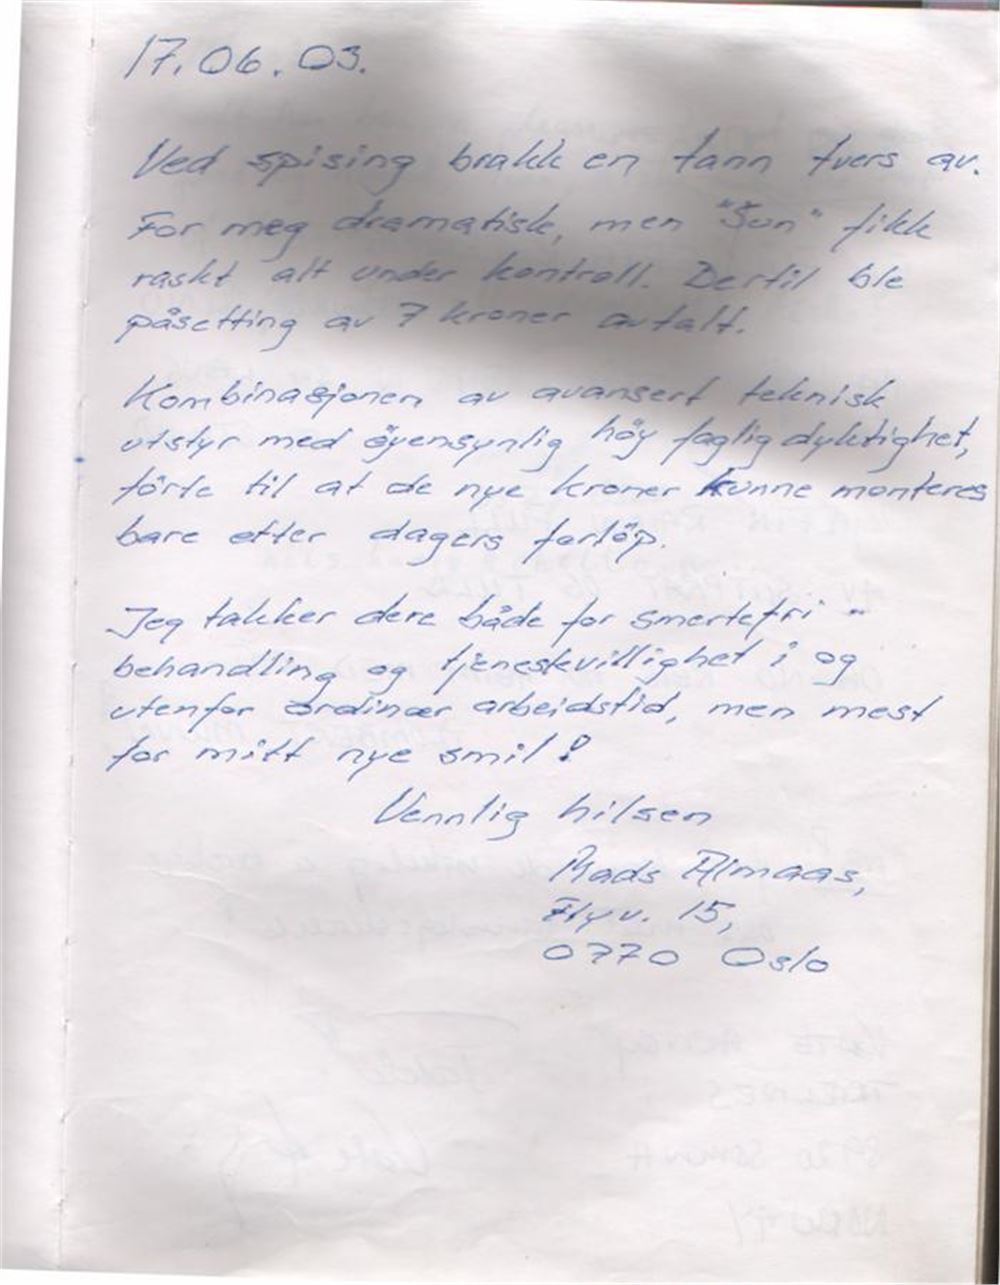 17.06.03.
Ved spising brakk en tann tvers av.
For meg dramatisk, men "Sun" fikk
raskt alt under kontroll. Dertil ble
påsetting av 7 kroner avtalt.
Kombinasjonen av avansert teknisk
utstyr med öyensynlig höy faglig dyktighet,
förte til at de nye kroner kunne monteres
bare etter dagers forlöp.
Jeg takker dere både for smertefri -
behandling og tjenestvillighet i og
utenfor ordinær arbeidstid, men mest
for mitt nye smil!
Vennlig hilsen
Mads Almaas,
Flyv. 15,
0770 Oslo